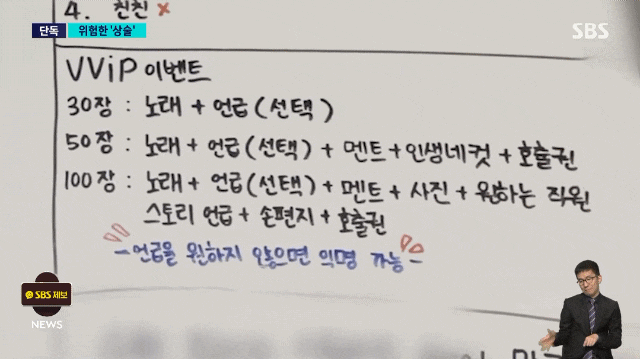 4. 친친 ×
단독 위험한 '상술'
SBS
VViP 이벤트
30장 : 노래 + 언급 (선택)
50장 : 노래 + 언급 (선택) + 멘트 + 인생네컷 + 호출권
100장 : 노래 + 언급 (선택) + 멘트 + 사진 + 원하는 직원
스토리 언급 + 손편지 + 호출권
- 언급을 원하지 않으면 익명 가능 -
SBS 제보
NEWS